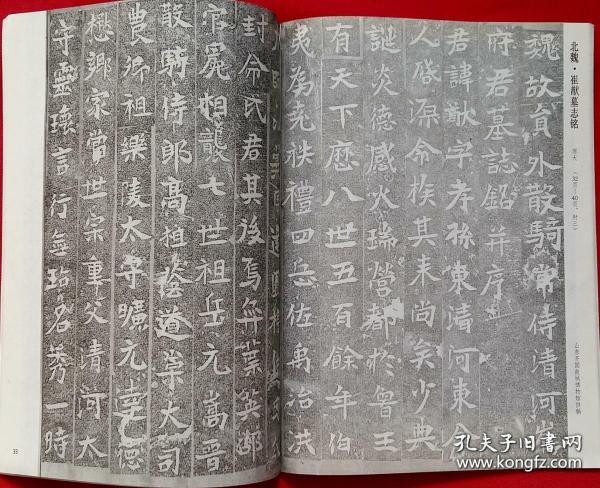 北魏·崔猷墓志铭
原大 （32页—40页，封三）
魏故員外散騎常侍清河崔
府君墓誌銘并序
君諱猷字孝孫東清河東
人啓源命族其来尚矣少典
炎德感火瑞營都於魯王
有天下歷八世五百餘年伯
夷為堯秩禮四岳佐禹治洪
封命氏君其後焉弈葉
官冕相襲七世祖岳元嵩晋
散騎侍郎高祖蔭道崇大司
農卿祖樂陵太守曠元德
懋鄉家當世宗重父清河太
守靈瓌言行無玷名秀一時
33
孔夫子旧书网
www.kongfz.com